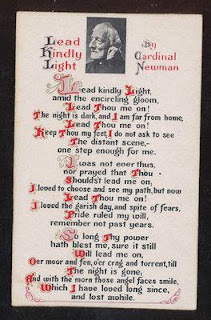 Lead
Kindly
Light
By
Cardinal
Newman
Lead kindly Light,
amid the encircling gloom,
Lead Thou me on!
The night is dark, and I am far from home,
Lead Thou me on!
Keep Thou my feet, I do not ask to see
The distant scene,-
one step enough for me.
I was not ever thus,
nor prayed that Thou
Shouldst lead me on,
I loved to choose and see my path, but now
Lead Thou me on!
I loved the garish day, and spite of fears,
Pride ruled my will,
remember not past years.
So long Thy power
hath blest me, sure it still
Will lead me on,
O'er moor and fen, o'er crag and torrent, till
The night is gone,
And with the morn those angel faces smile,
Which I have loved long since,
and lost awhile.